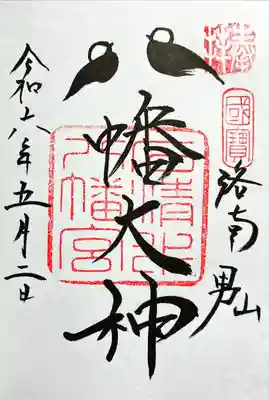 奉拝
國寶
洛南 男山
八幡大神
石清水
八幡宮
令和六年五月二日